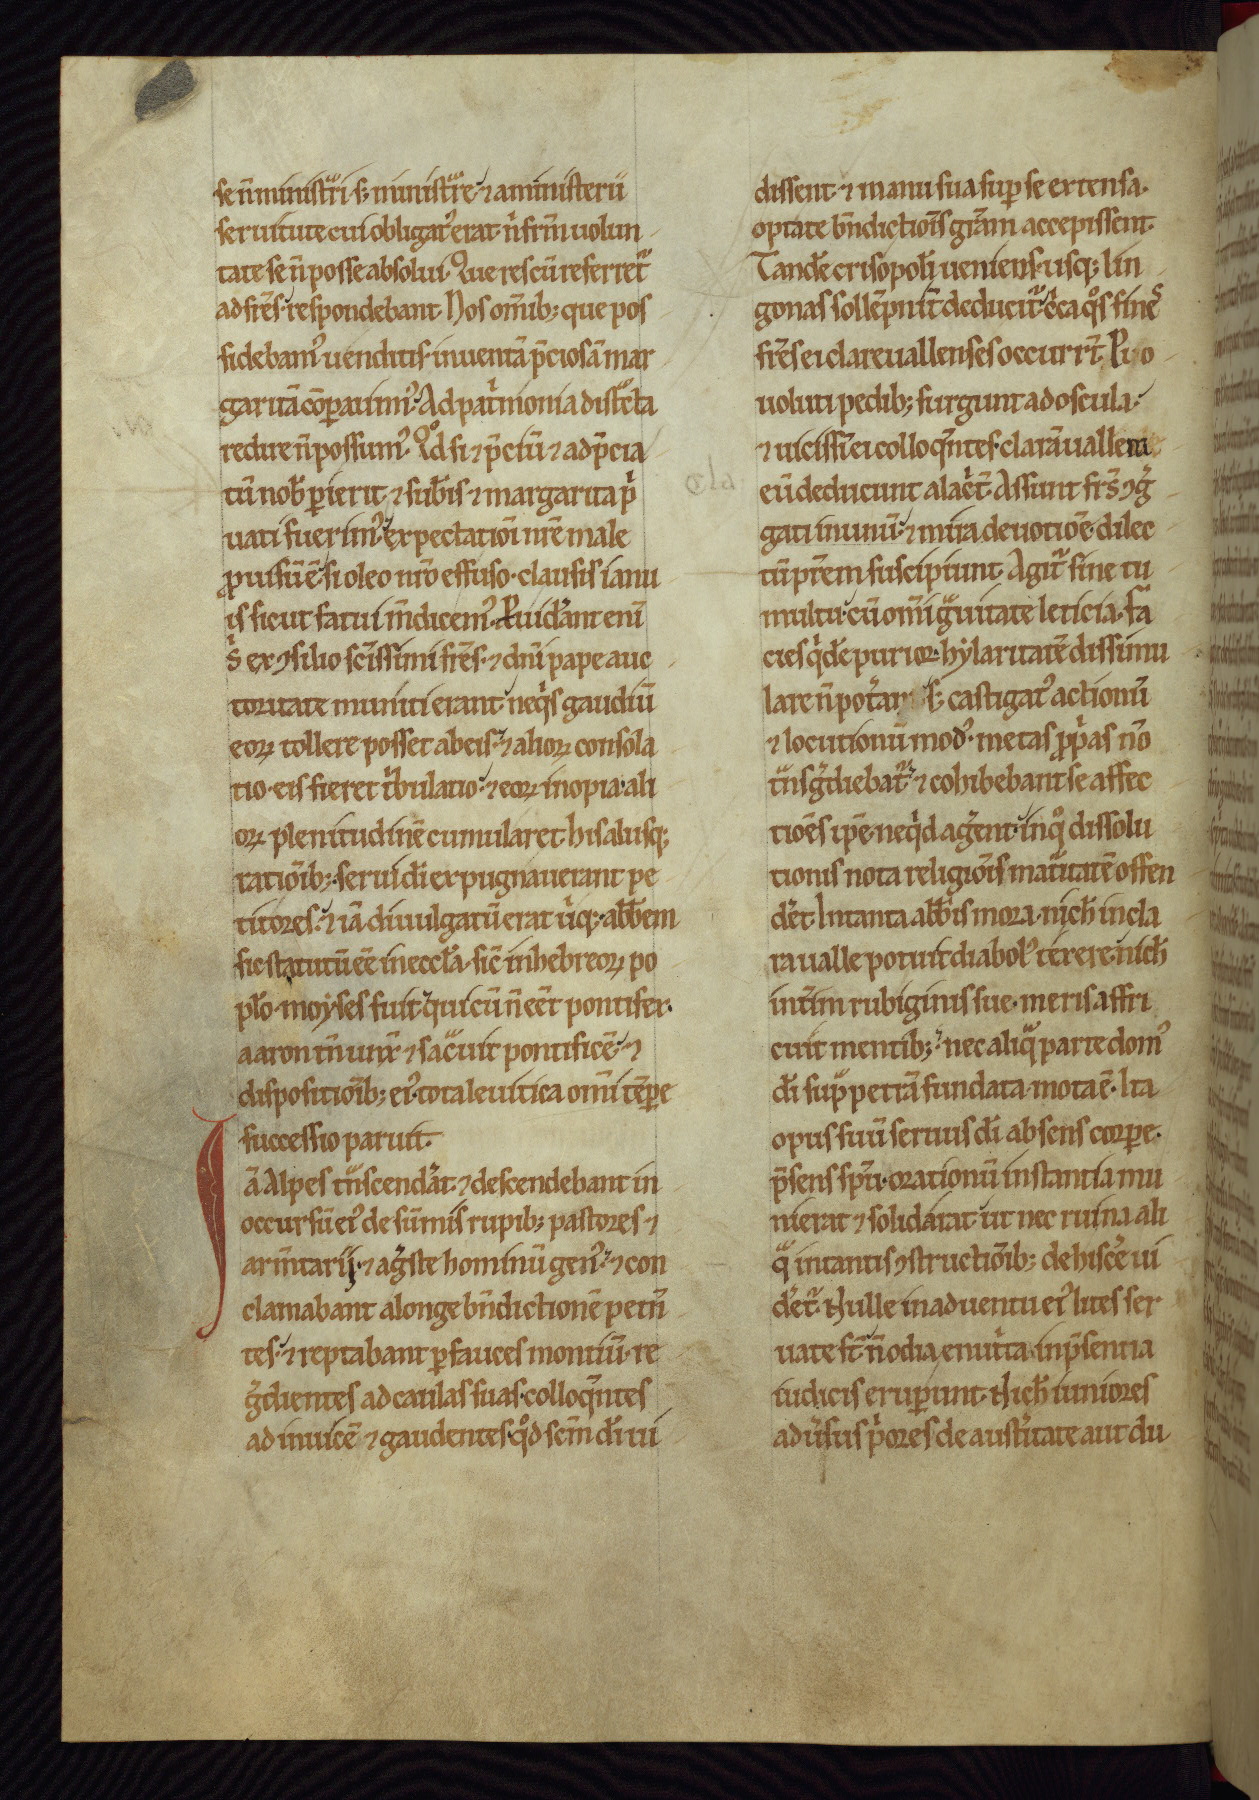 se n̄ ministrͣri s; ministrͣre ⁊ a ministerii
seruitute cui obligatꝰ erat n̍ fr̄m uolun
tate se n̄ posse absolui. Que res cū referretᷣ
ad fr̄es respondebant. Nos om̄ib; que pos
sidebamꝰ uenditis inuentā p̄ciosā mar
garitā cōparauimꝰ. Ad patͥmonia distͣcta
redire n̄ possumꝰ. Qͦd si ⁊ p̄ciū ⁊ adp̄cia
tū nob̄ ꝑierit ⁊ sub̄is ⁊ margarita pͥ
uati fuerimꝰ expectationī nr̄e male
ꝓuisū ē si oleo nr̄o effuso clausis ianu
is sicut fatui m̄dicemꝰ. Puid̓ant enī
sͥ ex ꝯsilio sc̄issimi fr̄es ⁊ dn̄i pape auc
toritate muniti erant neqͥs gaudiū
eoꝝ tollere posset ab eis ⁊ alioꝝ consola
tio eis fieret tͥbulatio ⁊ eoꝝ inopia ali
oꝝ plenitudinē cumularet. his alusq;
ratiōib; serui dī expugnauerant pe
titores ⁊ iā diuulgatū erat uͥq; abb̄em
sic statutū ēē in eccl̄a sic̄ in hebreoꝝ po
pl̄o moyses fuit qui cū n̄ eēt pontifex
aaron tn̄ unx̄ ⁊ sacͣuit pontificē ⁊
dispositiōib; eiꝰ tota leuitica om̄i tēpore
successio paruit.
Iā Alpes tͣnscend̓at ⁊ descendebant in
occursū eiꝰ de sūmis rupib; pastores ⁊
arm̄tarij ⁊ ag̓ste hominū genꝰ ⁊ con
clamabant a longe bn̄dictionē petn̄
tes ⁊ reptabant ꝑ fauces montiū re
g̓dientes ad caulas suas colloqͣntes
ad inuicē ⁊ gaudentes qͦd sc̄m dī ui
dissent ⁊ manu sua suꝑ se extensa
optate bn̄dictiōis gr̄am accepissent.
Tand̄e crisopolī ueniens usq; lin
gonas sollēpnit̄ deducitᷣ ēca qͦs fineˢ
fr̄es ei clareuallenses occurrr̄t. P o
uoluti pedib; surgunt ad oscula
⁊ uicissī ei colloqͣntes clarā uallem
eū deducunt alacͥt̄. Assunt fr̄s ꝯgͤ
gati in unū ⁊ mira deuotiōe dilec
tū pr̄em suscipiunt. Agitᷣ sine tu
multu cū om̄i gͣuitate leticia. fa
cies qͥdē purior hylaritatē dissimu
lare n̄ pot̓at s; castigatꝰ actionū
⁊ locutionū modꝰ metas ꝓpͥas nō
tͣnsg̓diebatᷣ ⁊ cohibebant se affec
tiōes ip̄e neqͥd ag̓ent inqͦ dissolu
tionis nota religiōis maturitatē offen
d̓et. In tanta abb̄is mora nich̄ in cla
raualle potuit diabolꝰ t̓rere nich̄
int̓im rubiginis sue meris affri
cuit mentib; nec aliqͣ parte domꝰ
dī supͣ petrā fundata mota ē. Ita
opus suū seruus dī absens corꝑe
p̄sens spr̄i orationū instantia mu
nierat ⁊ solidarat ut nec ruina ali
qͣ in tantis ꝯstructiōib; dehisce̓ ui
d̓etᷣ. Nulle in aduentu eiꝰ lites ser
uate st̄ n̄ odia enutͥta in p̄sentia
iudicis eruꝑunt. Nich̄ iuniores
adūsus pͥores de aust̓itate aut du
cla